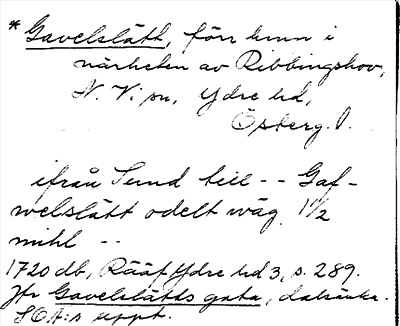 * Gavelslätt, förr krun i
närheten av Ribbingshov,
N. Vi sn, Ydre hd,
Österg. l.
ifrån Sund till -- Gaf-
welslätt odelt wäg 1 1/2
mihl --
1720 db, Rääf Ydre hd 3, s. 289.
Jfr Gavelslätts gata,
SOA:s uppt.